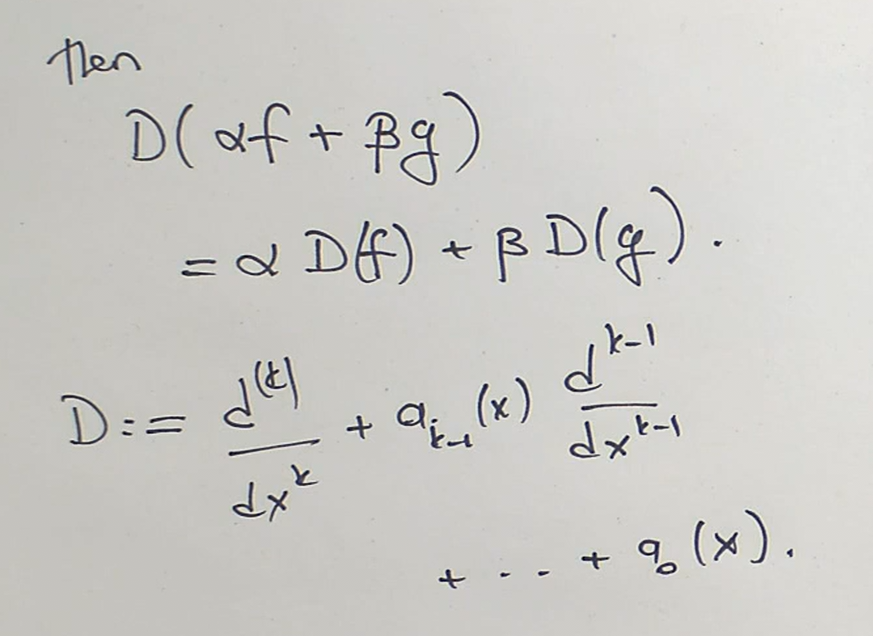 then
D(αf + βg)
= α D(f) + β D(g).
D := d^(k)/dx^k + a_{k-1}(x) d^{k-1}/dx^{k-1}
+ ... + a_0(x).